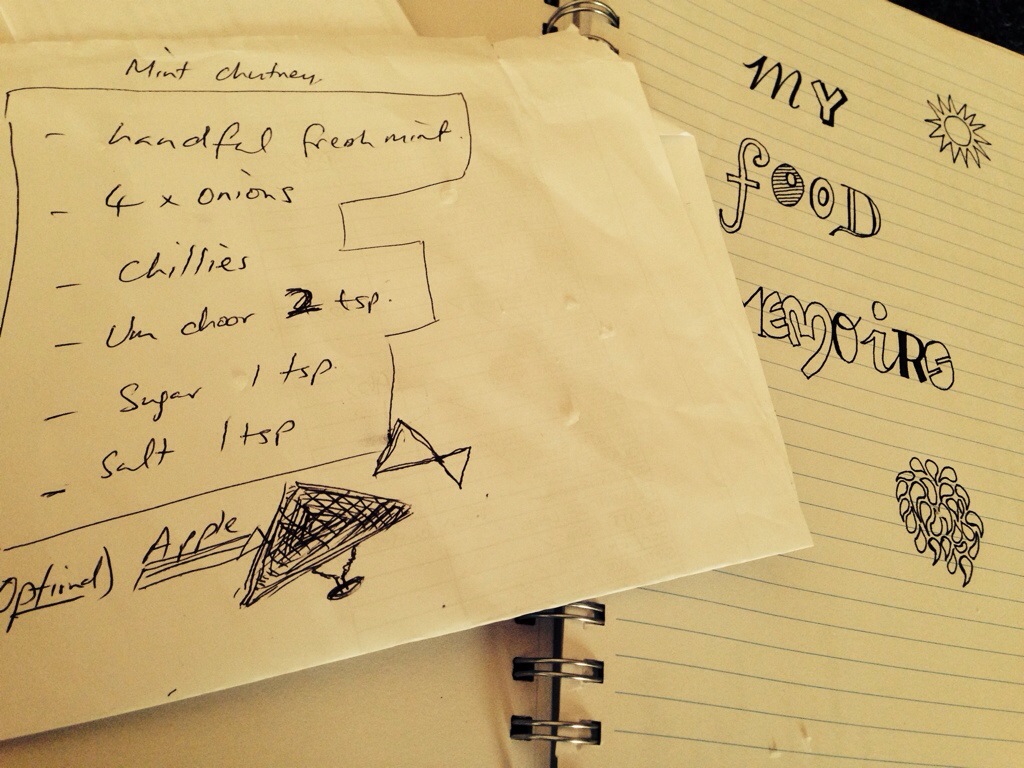 Mint chutney
- handful fresh mint.
- 4 x onions
- chillies
- Um choor 2 tsp.
- Sugar 1 tsp.
- Salt 1 tsp
Optional) Apple
MY
FOOD
MEMOIRS